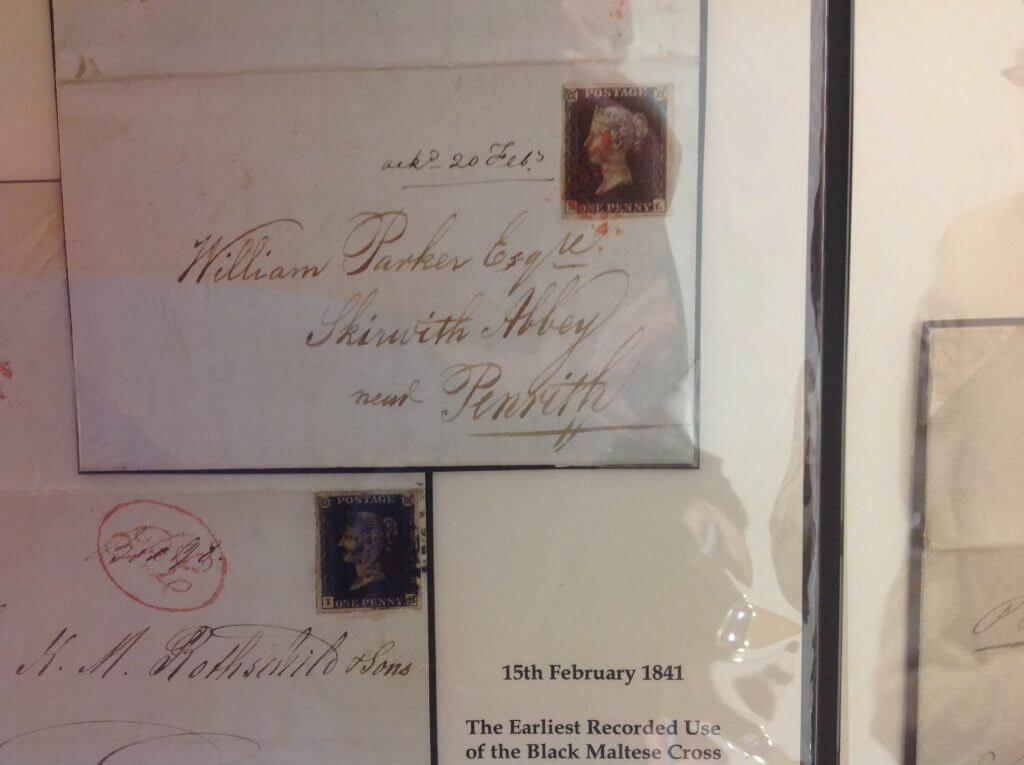 POSTAGE
ONE PENNY
ackd 20 Feby
William Parker Esqre.
Skirwith Abbey
near Penrith
POSTAGE
I ONE PENNY
N. M. Rothschild & Sons
15th February 1841
The Earliest Recorded Use
of the Black Maltese Cross